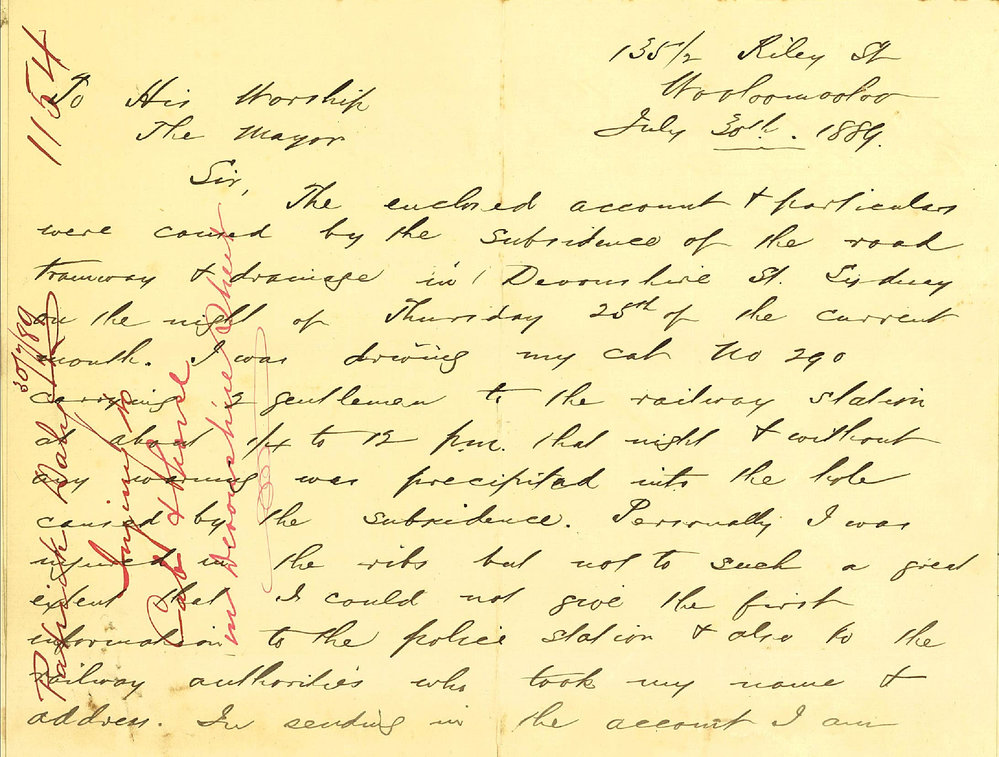 135/2 Riley St
Wooloomooloo
July 30th. 1889.
To His Worship
The Mayor
Sir,
The enclosed account & particulars
were caused by the subsidence of the road
tramway & drainage in Devonshire St. Sydney
on the night of Thursday 25th of the current
month. I was driving my cab No 290
carrying 2 gentlemen to the railway station
at about 1/4 to 12 p.m. that night & without
any warning was precipitated into the hole
caused by the subsidence. Personally I was
injured in the ribs but not to such a great
extent that I could not give the first
information to the police station & also to the
railway authorities who took my name &
address. In sending in the account I am
1154
Patrick Daly
30/7/89
Injuries to
Cab & Horse
in Devonshire Street